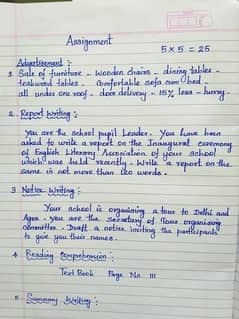 Assignment
5 x 5 = 25
Advertisement :
1 Sale of furniture - Wooden chairs - dining tables -
teakwood tables - Comfortable sofa cum bed -
all under one roof - door delivery - 15% less - hurry.
2. Report Writing :
You are the school pupil Leader. You have been
asked to write a report on the Inaugural ceremony
of English Literary Association of your school
which was held recently. Write a report on the
same in not more than 120 words.
3 Notice Writing :
Your school is organising a tour to Delhi and
Agra. You are the Secretary of Tour organising
committee. Draft a notice inviting the participants
to give you their names.
4 Reading Comprehension :
Text Book Page No 111
5 Summary Writing :